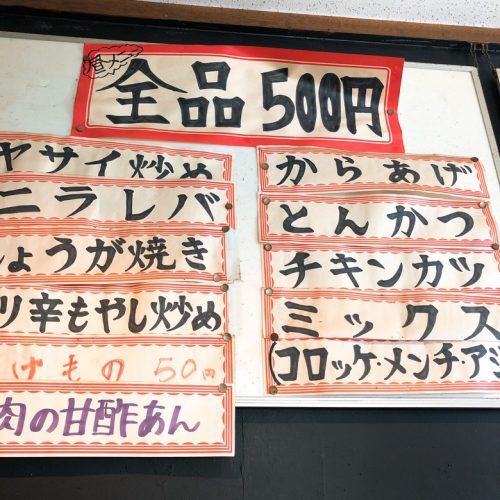 全品500円
ヤサイ炒め
ニラレバ
しょうが焼き
リ辛もやし炒め
げもの 50円
肉の甘酢あん
からあげ
とんかつ
チキンカツ
ミックス
(コロッケ・メンチ・アジ